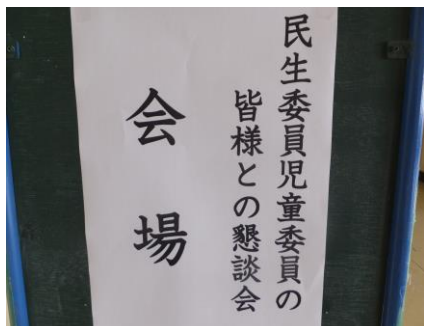 民生委員児童委員の
皆様との懇談会
会場